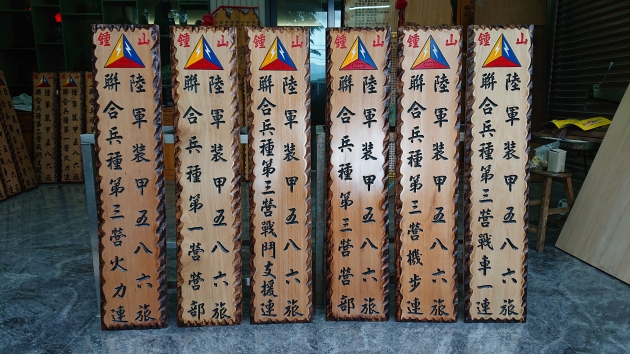 鍾山
陸軍裝甲五八六旅
聯合兵種第三營火力連
鍾山
陸軍裝甲五八六旅
聯合兵種第一營營部
鍾山
陸軍裝甲五八六旅
聯合兵種第三營戰鬥支援連
鍾山
陸軍裝甲五八六旅
聯合兵種第三營營部
鍾山
陸軍裝甲五八六旅
聯合兵種第三營機步連
鍾山
陸軍裝甲五八六旅
聯合兵種第三營戰車一連